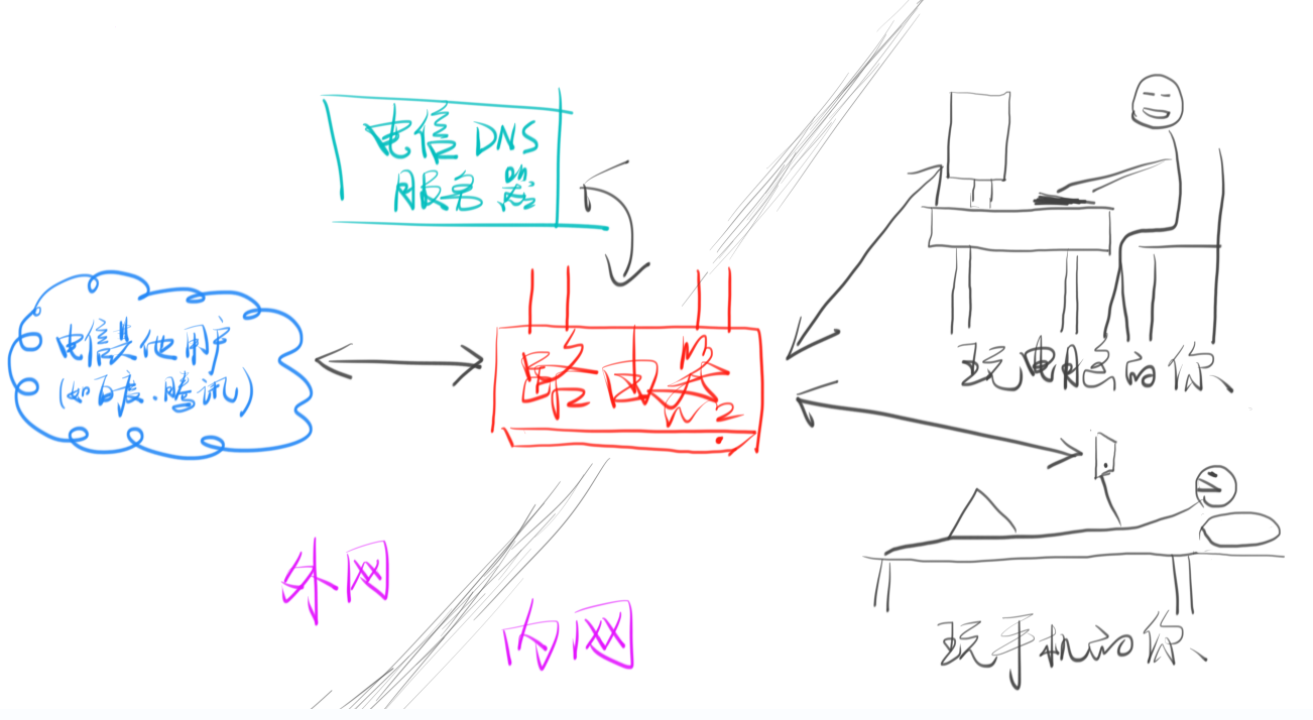 电信 DNS
服务器
电信其他用户
(如百度、腾讯)
路由器
玩电脑的你、
玩手机的你、
外网
内网